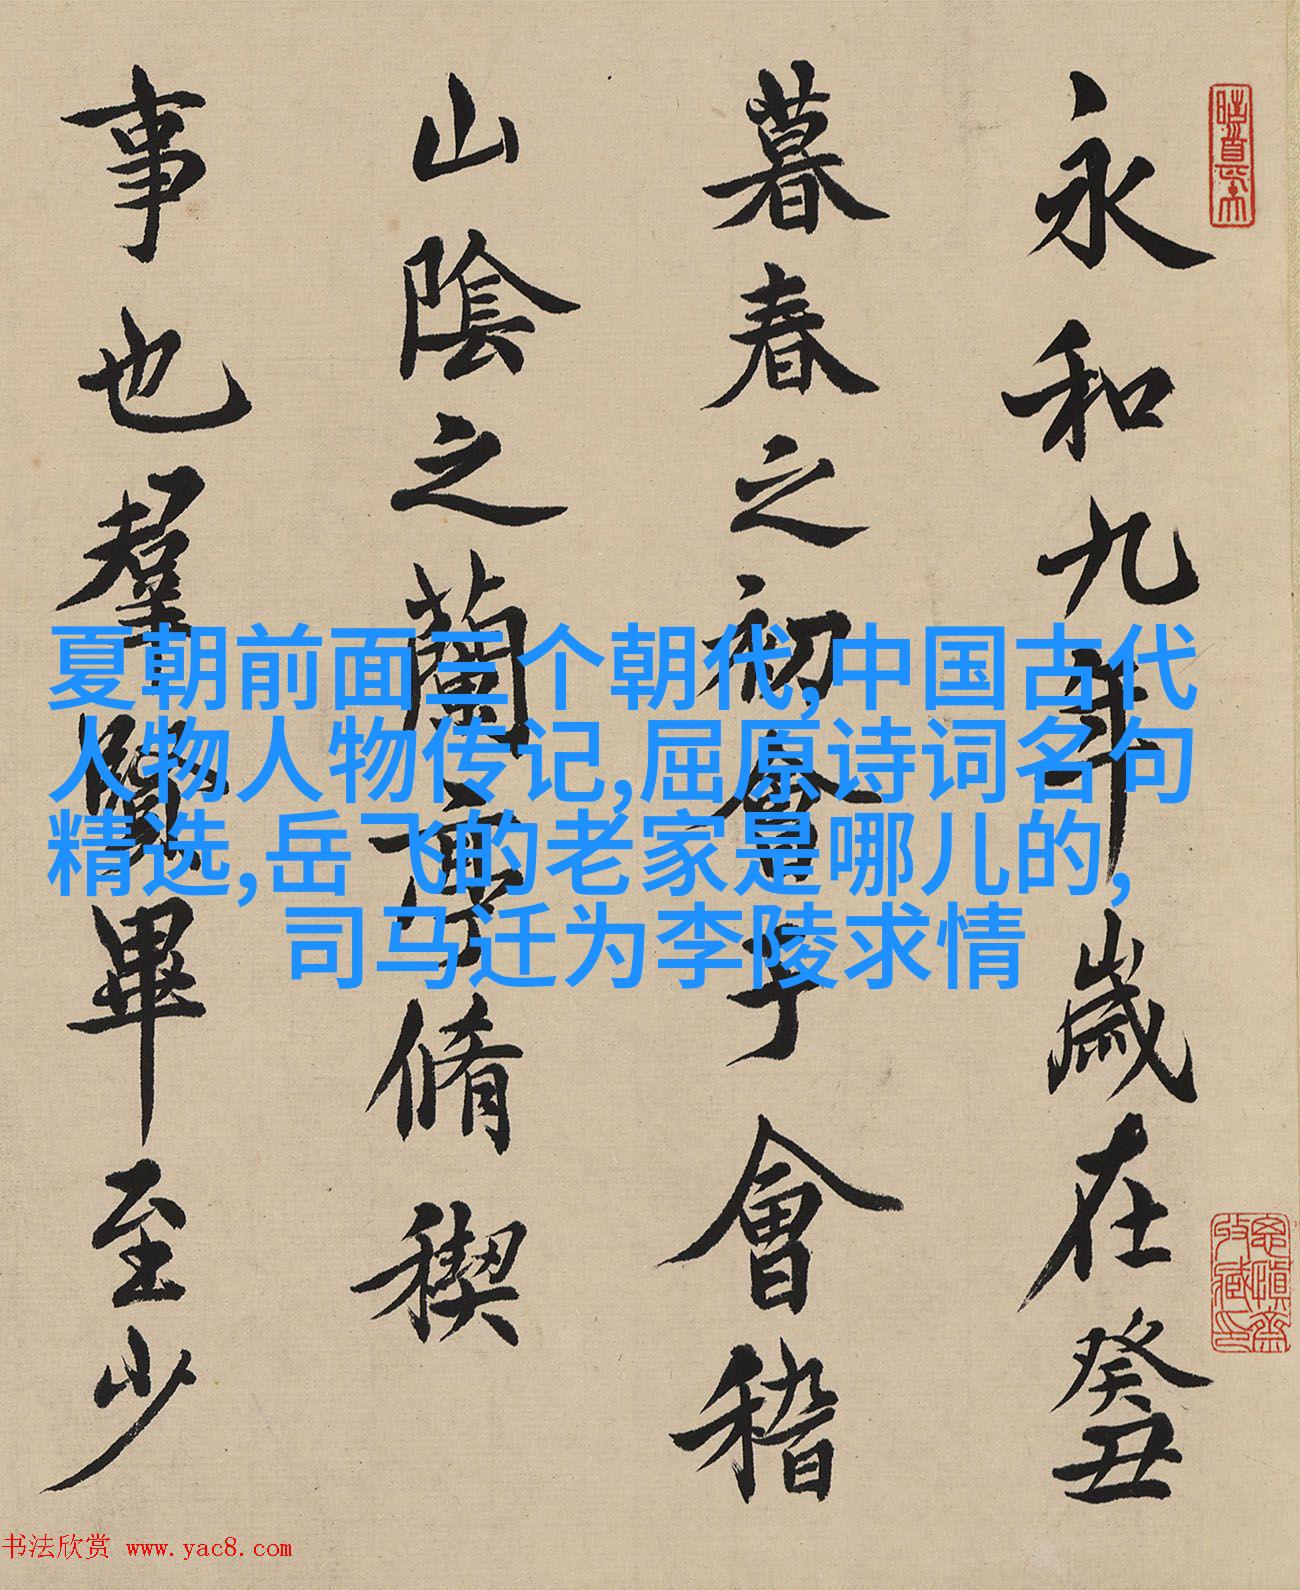 永和九年歲在癸丑
暮春之初會于會稽
山陰之蘭亭脩稧
事也羣賢畢至少
夏朝前面三个朝代,中国古代
人物人物传记,屈原诗词名句
精选,岳飞的老家是哪儿的,
司马迁为李陵求情
书法欣赏 www.yac8.com